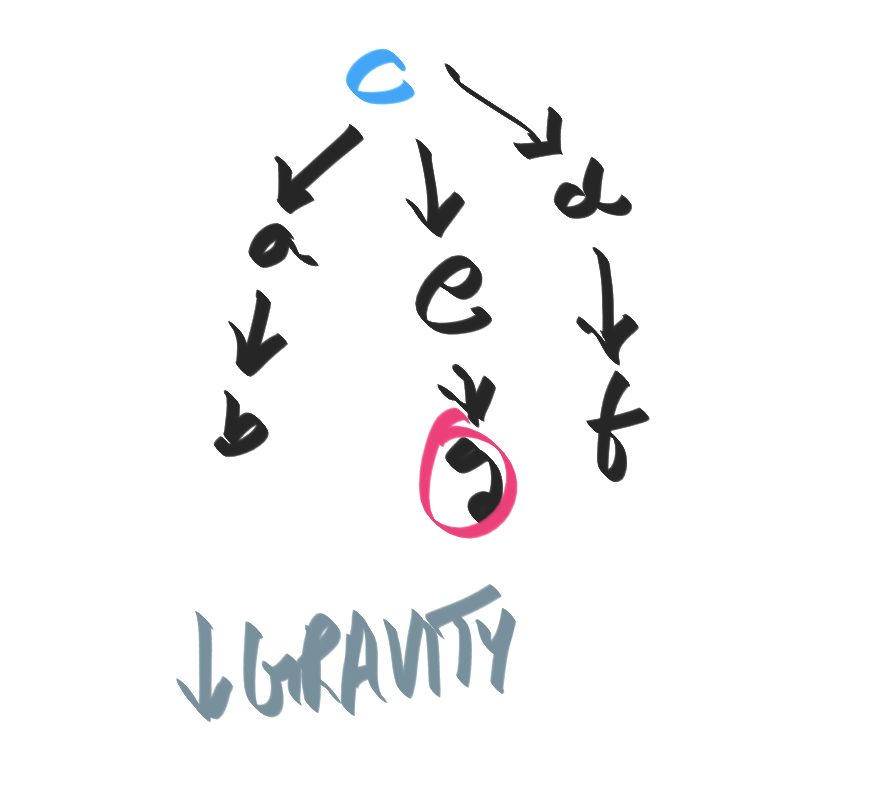 c
a e d
b f
↓ GRAVITY